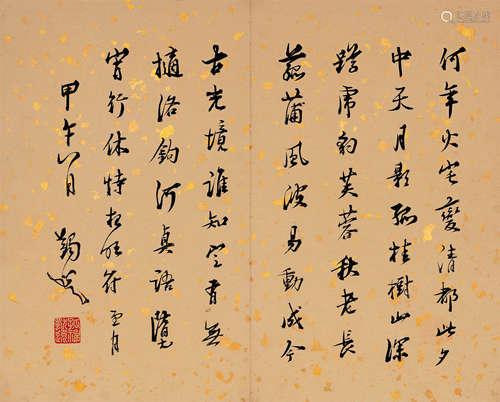 何年火宅變清都此夕
中天月影孤桂樹山深
蹲虎豹芙蓉秋老長
菰蒲風波易動成今
古光境誰知有無
洛鈎河真語墮
宵行休恃符月
甲午八月